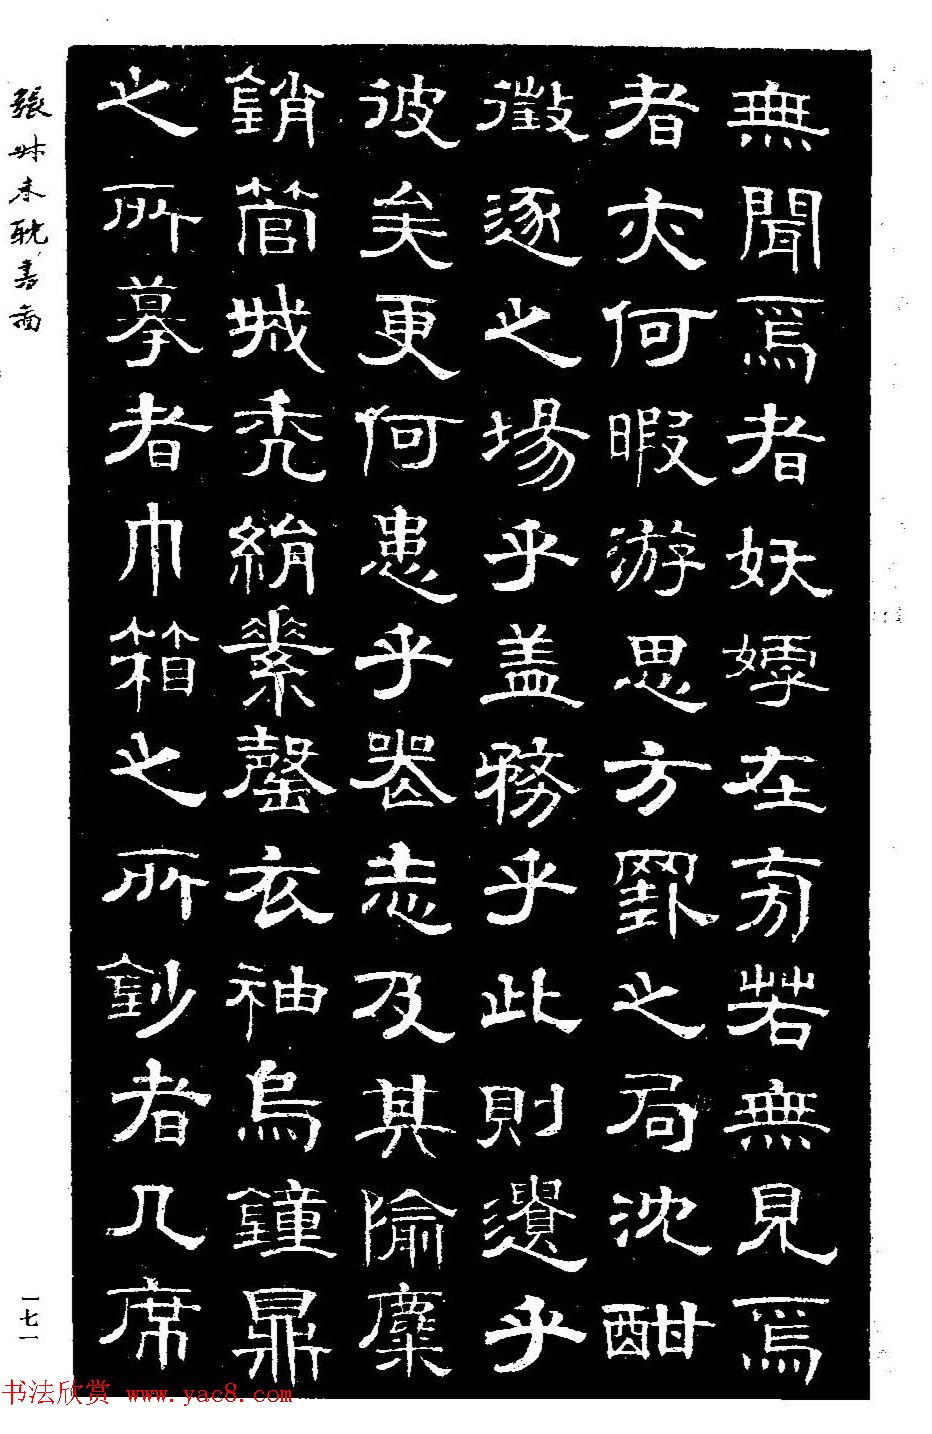 無聞焉者妖嫭在旁若無見焉
者亦何暇游思方罫之局沈酣
徵逐之場乎盖務乎此則遺乎
彼矣更何患乎器志及其隃麋
銷管城禿絹素罄衣袖烏鐘鼎
之所摹者巾箱之所鈔者几席
張尗未耽書啚
一七一
书法欣赏 www.yac8.com